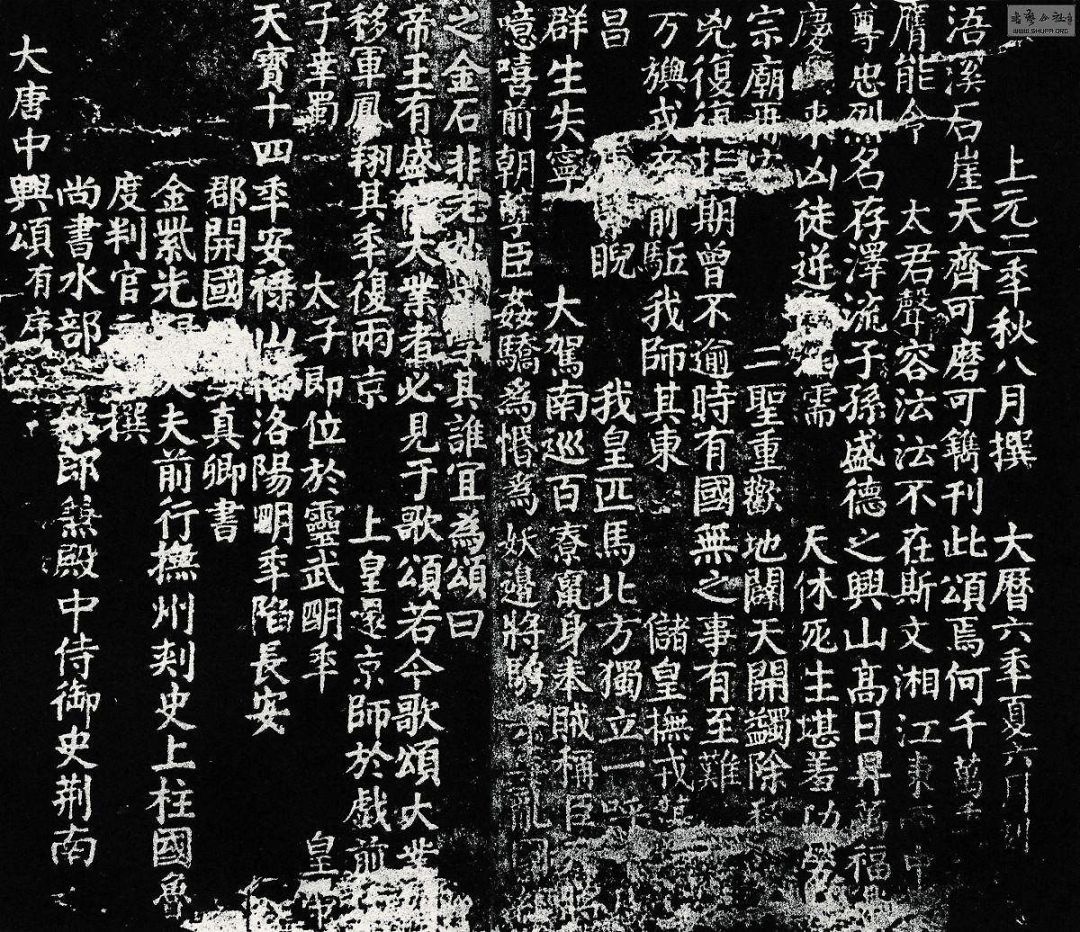 大唐中興頌有序
尚書水部郎兼殿中侍御史荊南
度判官撰
金紫光大夫前行撫州刺史上柱國魯
郡開國真卿書
天寶十四年安祿山陷洛陽明年陷長安
子幸蜀 太子即位於靈武明年 皇帝
移軍鳳翔其年復兩京 上皇還京師於戲前
帝王有盛大業者必見于歌頌若今歌頌大業
之金石非老其誰宜為頌曰
噫嘻前朝孽臣姦驕為惛為妖邊將騁亂國
群生失寧 大駕南巡百寮竄身奉賊稱臣
昌睨 我皇匹馬北方獨立一呼
万旟戎卒前駈我師其東 儲皇撫戎蕩
兇復復指期曾不逾時有國無之事有至難
宗廟再安 二聖重歡地闢天開蠲除
慶凶徒逆濡 天休死生堪羞功勞
尊忠烈名存澤流子孫盛德之興山高日昇萬福
膺能令 大君聲容沄沄不在斯文湘江東中
浯溪石崖天齊可磨可鐫刊此頌焉何千萬
上元二年秋八月撰 大曆六年夏六月刻
WWW.SHUFA.ORG